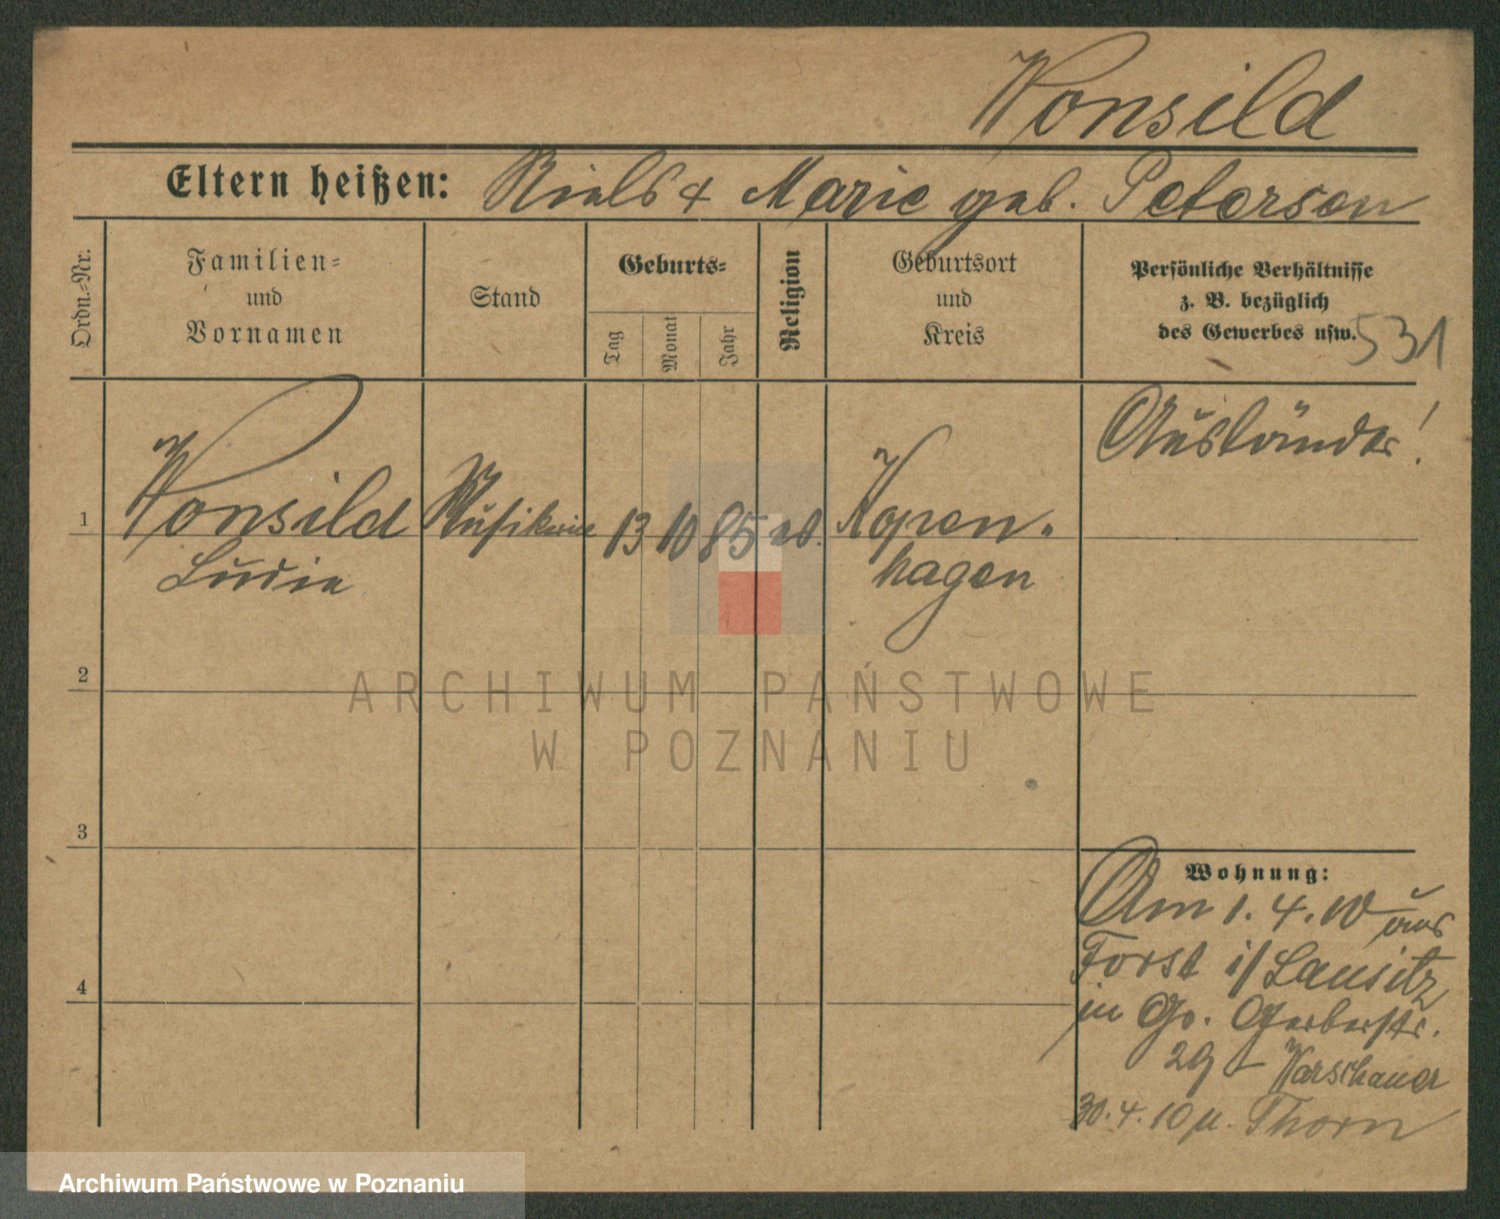 Wonsild
Eltern heißen: Niels & Marie geb. Petersen
Ordn.-Nr.
Familien-
und
Vornamen
Stand
Geburts-
Tag
Monat
Jahr
Religion
Geburtsort
und
Kreis
Persönliche Verhältnisse
z. B. bezüglich
des Gewerbes usw.
531
Ausländer!
1
Wonsild
Musikerin
13
10
85
Kopen-
hagen
2
3
4
Wohnung:
Am 1. 4. 10 aus
Forst i/ Lausitz
in Gr. Gerberstr.
29 Warschauer
30. 4. 10 n. Thorn
ARCHIWUM PAŃSTWOWE
W POZNANIU
Archiwum Państwowe w Poznaniu